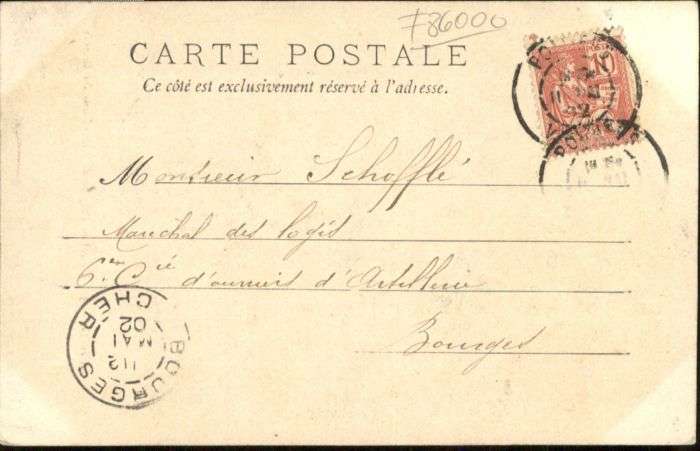 F86000
CARTE POSTALE
Ce côté est exclusivement réservé à l'adresse.
POSTES
10
POITIERS
Monsieur Schofflé
Maréchal des logis
6ème Cie d'ouvriers d'Artillerie
Bourges
BOURGES
CHER
MAI
02